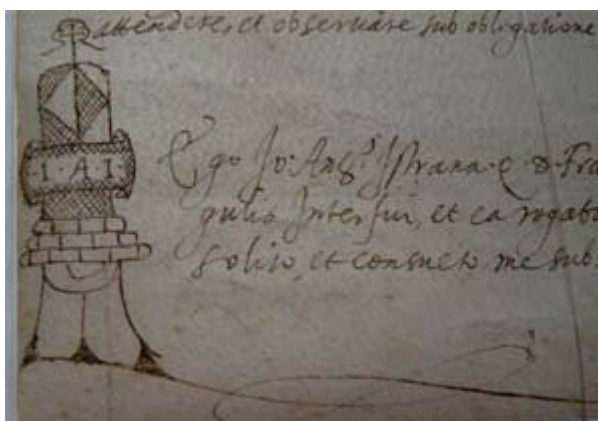 attendere, et observare sub obligatione
I · A I
Ego Jo: Ang.s Istrana q. D. Fra
gulis Interfui, et ea rogatu
solito, et consueto me sub.